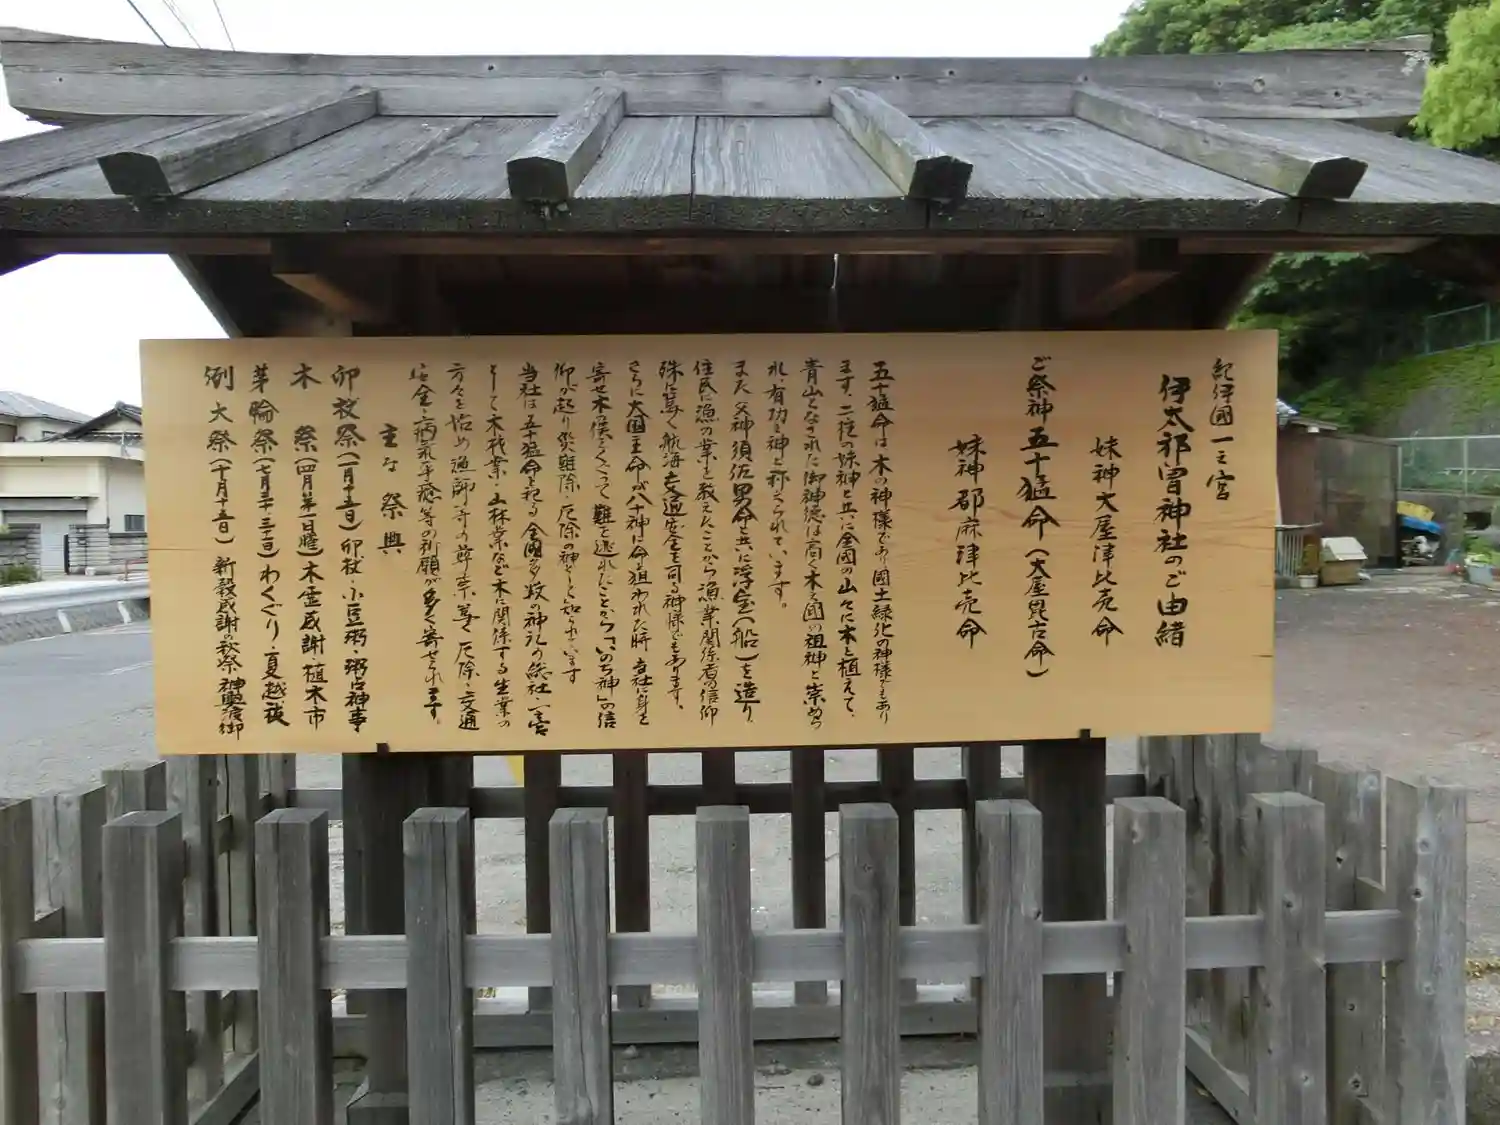 紀伊國一之宮
伊太祁曽神社のご由緒
妹神大屋津比売命
ご祭神五十猛命(大屋毘古命)
妹神都麻津比売命
五十猛命は木の神様であり國土緑化の神様でもあり
ます。二柱の妹神と共に全國の山々に木を植えて、
青山となされた御神徳は高く木の國の祖神と崇めら
れ、有功之神と称えられています。
また父神須佐男命と共に浮宝(船)を造り、
住民に漁の業を教えたことから漁業関係者の信仰
殊に篤く航海交通安全を司る神様でもあります。
さらに大国主命が八十神に命を狙われた時、当社に身を
寄せ木俣をくぐって難を逃れたことから「いのち神」の信
仰が起り災難除・厄除の神として知られています
当社は五十猛命を祀る全國多数の神社の総社・一宮
として木材業・山林業など木に関係する生業の
方々を始め漁師等の尊崇篤く厄除・交通
安全・病気平癒等の祈願が多く寄せられます。
主な祭典
卯杖祭(一月十五日)卯杖・小豆粥・粥占神事
木祭(四月第一日曜)木霊感謝植木市
茅輪祭(七月三十・三十一日)わくぐり・夏越祓
例大祭(十月十五日)新穀感謝の秋祭神輿渡御